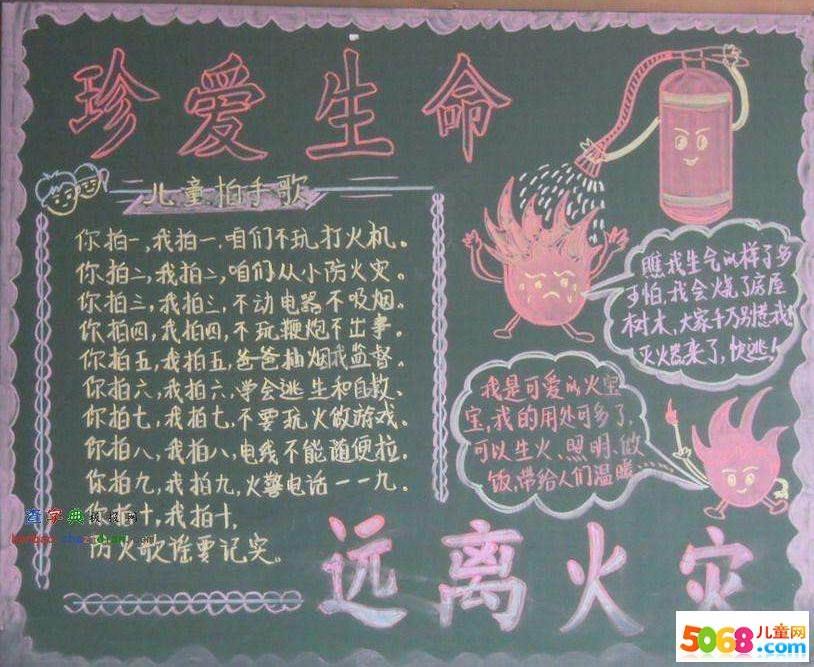 珍爱生命
儿童拍手歌
你拍一,我拍一,咱们不玩打火机。
你拍二,我拍二,咱们从小防火灾。
你拍三,我拍三,不动电器不吸烟。
你拍四,我拍四,不玩鞭炮不出事。
你拍五,我拍五,爸爸抽烟我监督。
你拍六,我拍六,学会逃生和自救。
你拍七,我拍七,不要玩火做游戏。
你拍八,我拍八,电线不能随便拉。
你拍九,我拍九,火警电话一一九。
你拍十,我拍十,
防火歌谣要记实。
瞧我生气的样子多
可怕,我会烧了房屋
树木,大家千万别惹我!
灭火器来了,快逃!
我是可爱的火宝
宝,我的用处可多了,
可以生火、照明、做
饭,带给人们温暖……
远离火灾
查字典
5068儿童网
.com